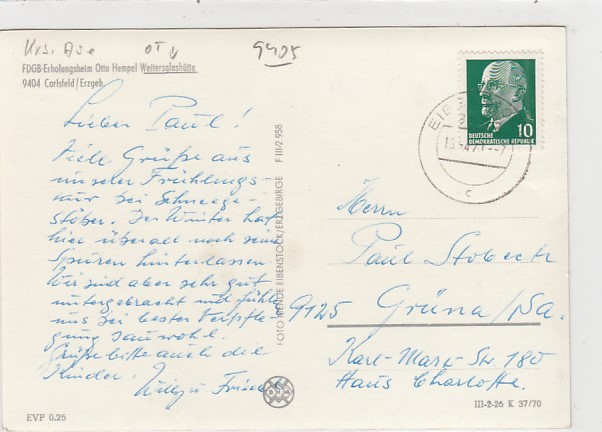 Krs. Aue
9405
FDGB-Erholungsheim Otto Hempel Weitersglashütte
9404 Carlsfeld/Erzgeb.
Lieber Paul!
Viele Grüße aus
unserer Frühlings-
kur bei Schneege-
stöber. Der Winter hat
hier überall noch seine
Spuren hinterlassen.
Wir sind aber sehr gut
untergebracht und fühlen
uns bei bester Verpfle-
gung sauwohl.
Grüße bitte auch die
Kinder!
Willy u. Friedel
EVP 0.25
FOTO WENDE EIBENSTOCK/ERZGEBIRGE F III-2 958
DEUTSCHE 10
DEMOKRATISCHE REPUBLIK
c
Herrn
Paul Stobeck
9125 Grüna/Sa.
Karl-Marx-Str 180
Haus Charlotte.
III-2-26 K 37/70